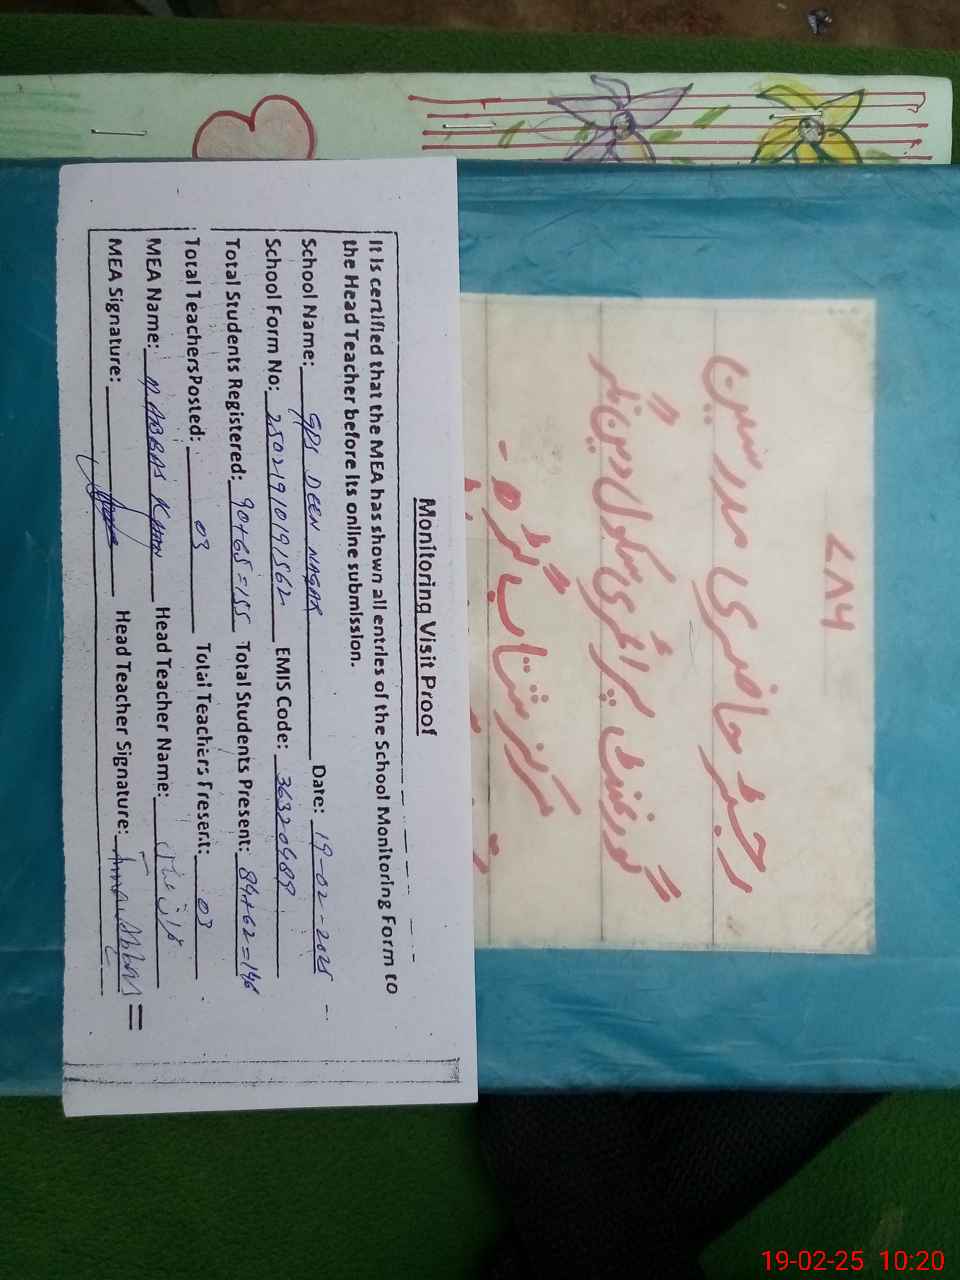 Monitoring Visit Proof
It is certified that the MEA has shown all entries of the School Monitoring Form to
the Head Teacher before its online submission.
School Name: GPS DEEN NAGAR Date: 19-02-2025
School Form No: 25021910191562 EMIS Code: 36320489
Total Students Registered: 90+65=155 Total Students Present: 84+62=146
Total Teachers Posted: 03 Total Teachers Present: 03
MEA Name: M ABBAS KHAN Head Teacher Name:
MEA Signature: Head Teacher Signature:
۷۸۶
رجسٹر حاضری مدرسین
گورنمنٹ پرائمری سکول دین نگر
مرکز شتاب گڑھ -
19-02-25 10:20